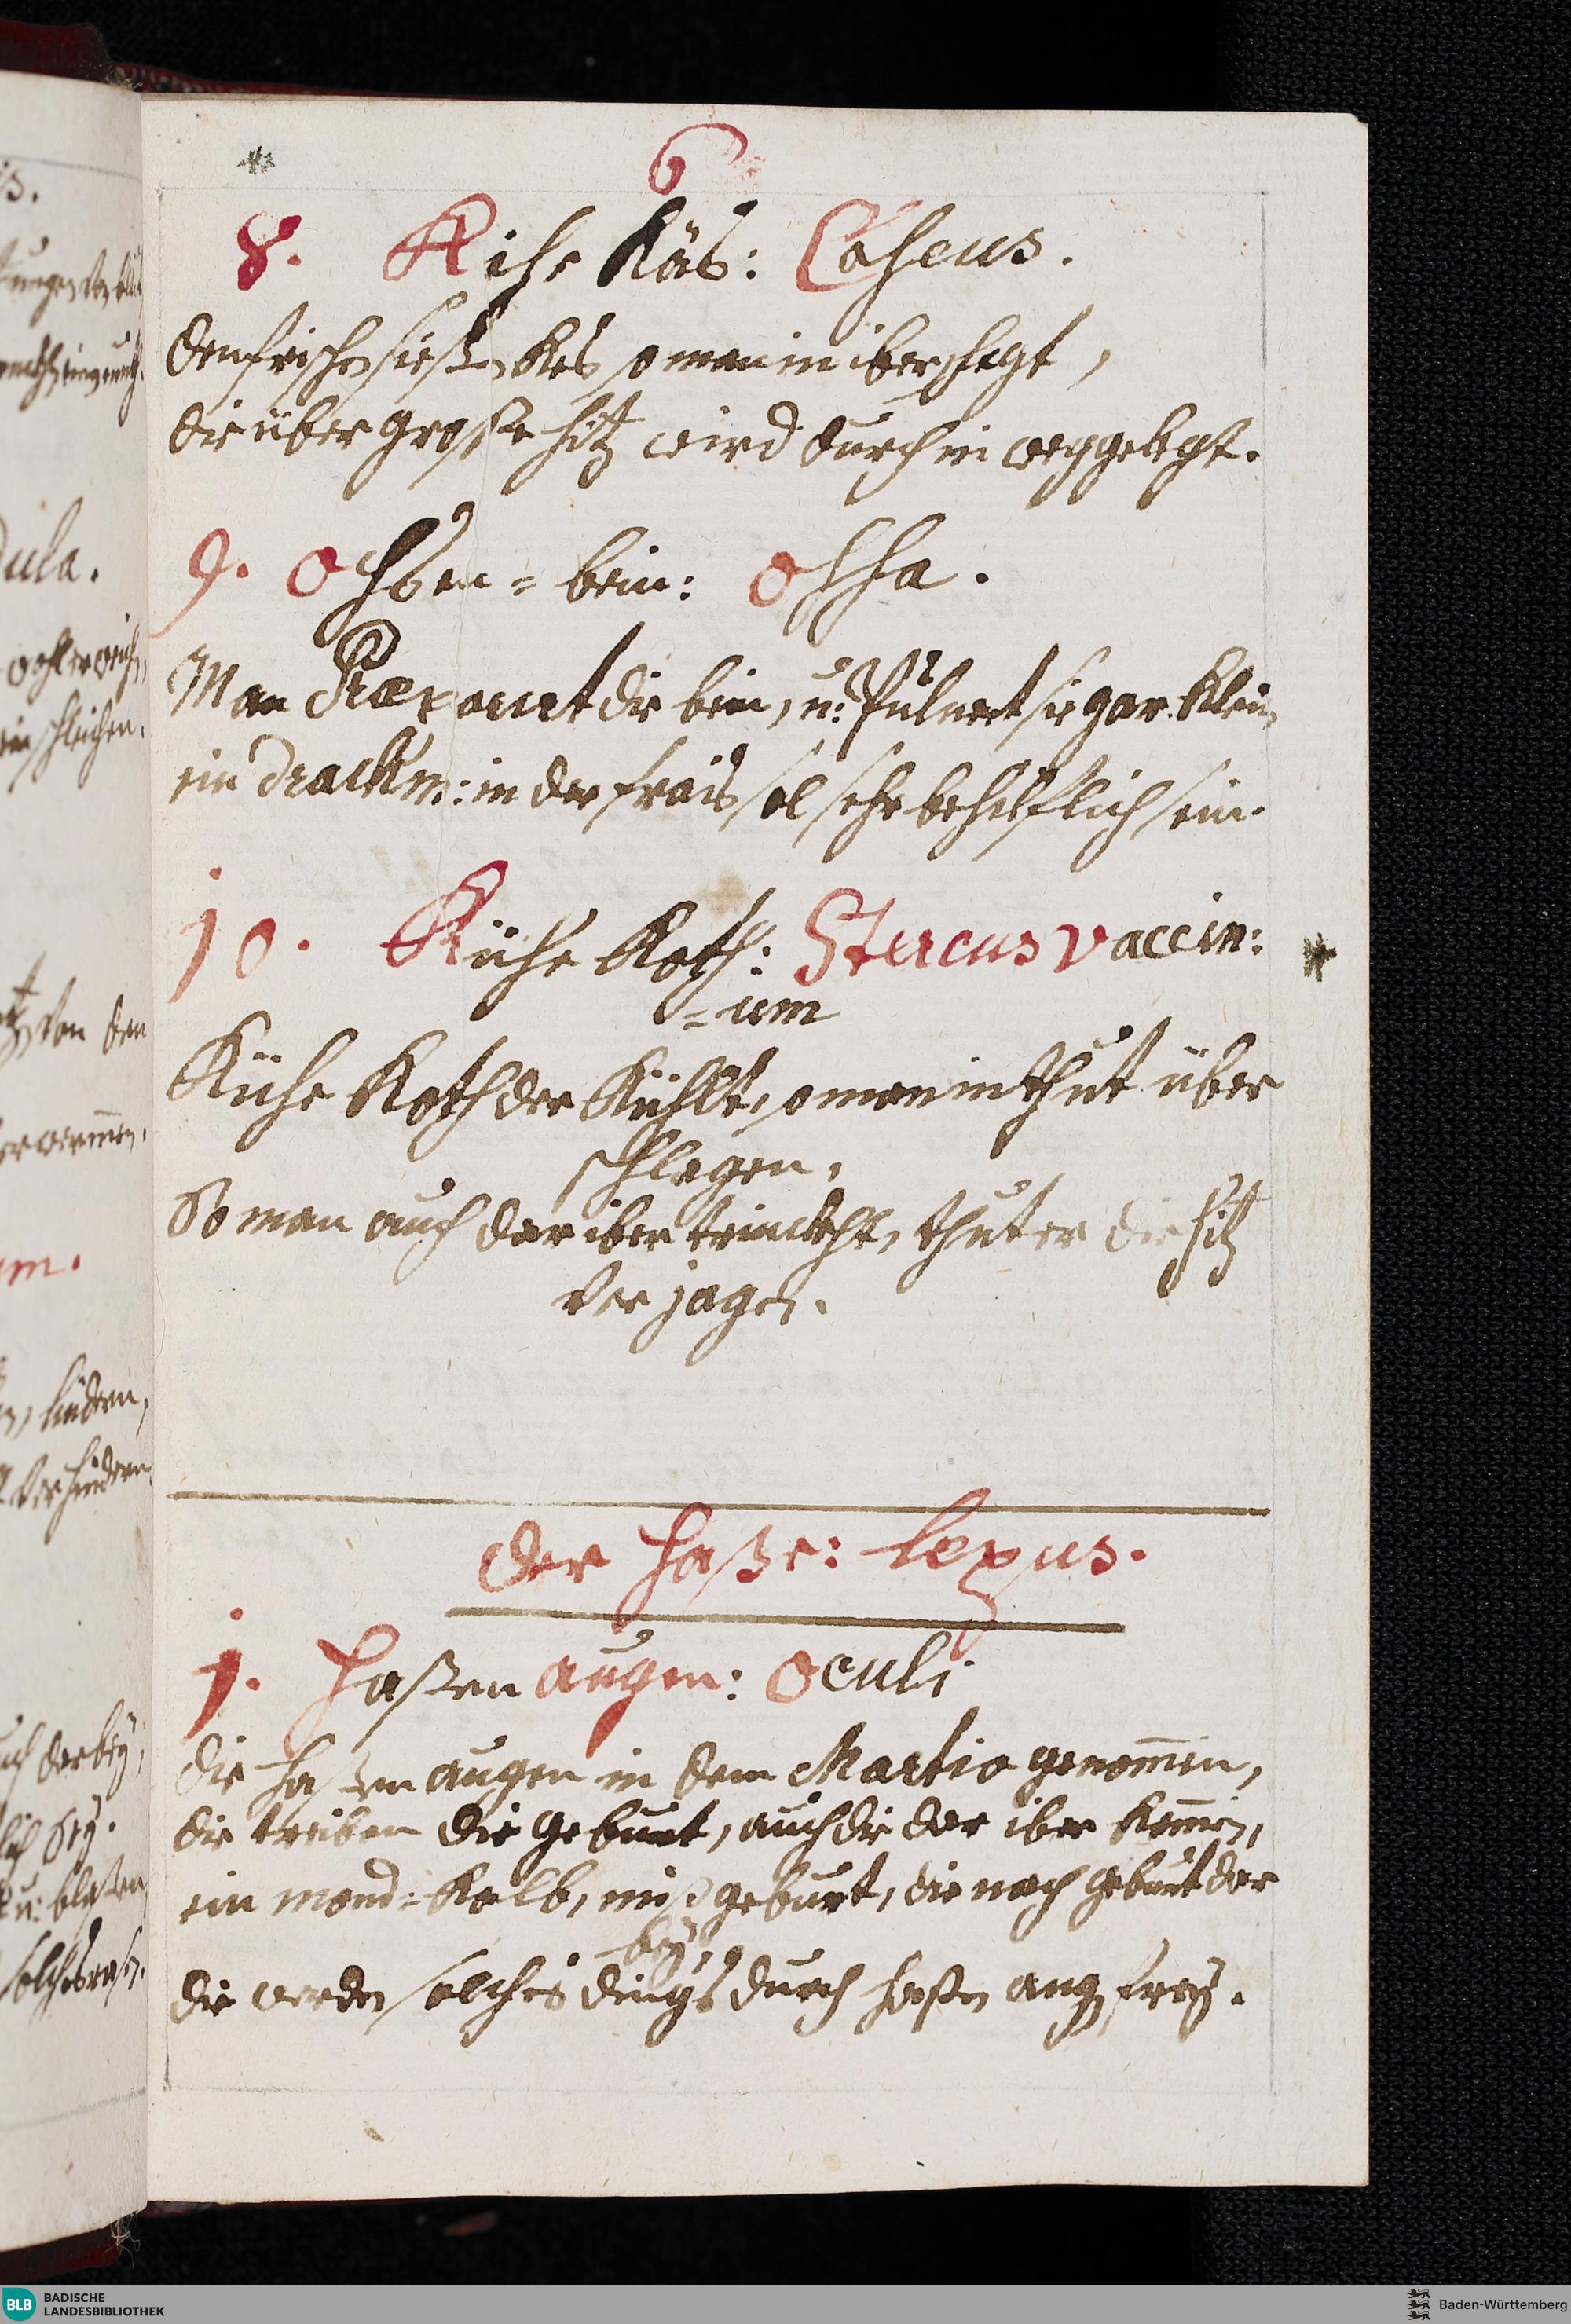 6
8. Kihe Käs: Caseus.
Den frischen siessen Kes so man in iberschlegt,
die über grosse hitz wird durch in weggelegt.
9. Ochsen=bein: Ossa.
Man Præpariert die bein, u: Pulvert sie gar klein,
ein drackm: in der frais sol sehr behilflich sein.
10. Kühe Koth: Stercus vaccin:
=um
Kühe Koth der Kühlt, so man in thut über
schlagen,
So man auch dariber trinckht, thut er die hitz
ver jagen.
Der Hasse: lepus.
1. Hassen augen: Oculi
die hassen augen in dem Martio genom̄en,
die treiben die geburt, auch die dar iber kom̄en,
ein mond=Kalb, missgeburt, die nach geburt dar
bey,
die werden solches dings durch hassen aug frey.
ula.
m.
BLB BADISCHE
LANDESBIBLIOTHEK
Baden-Württemberg